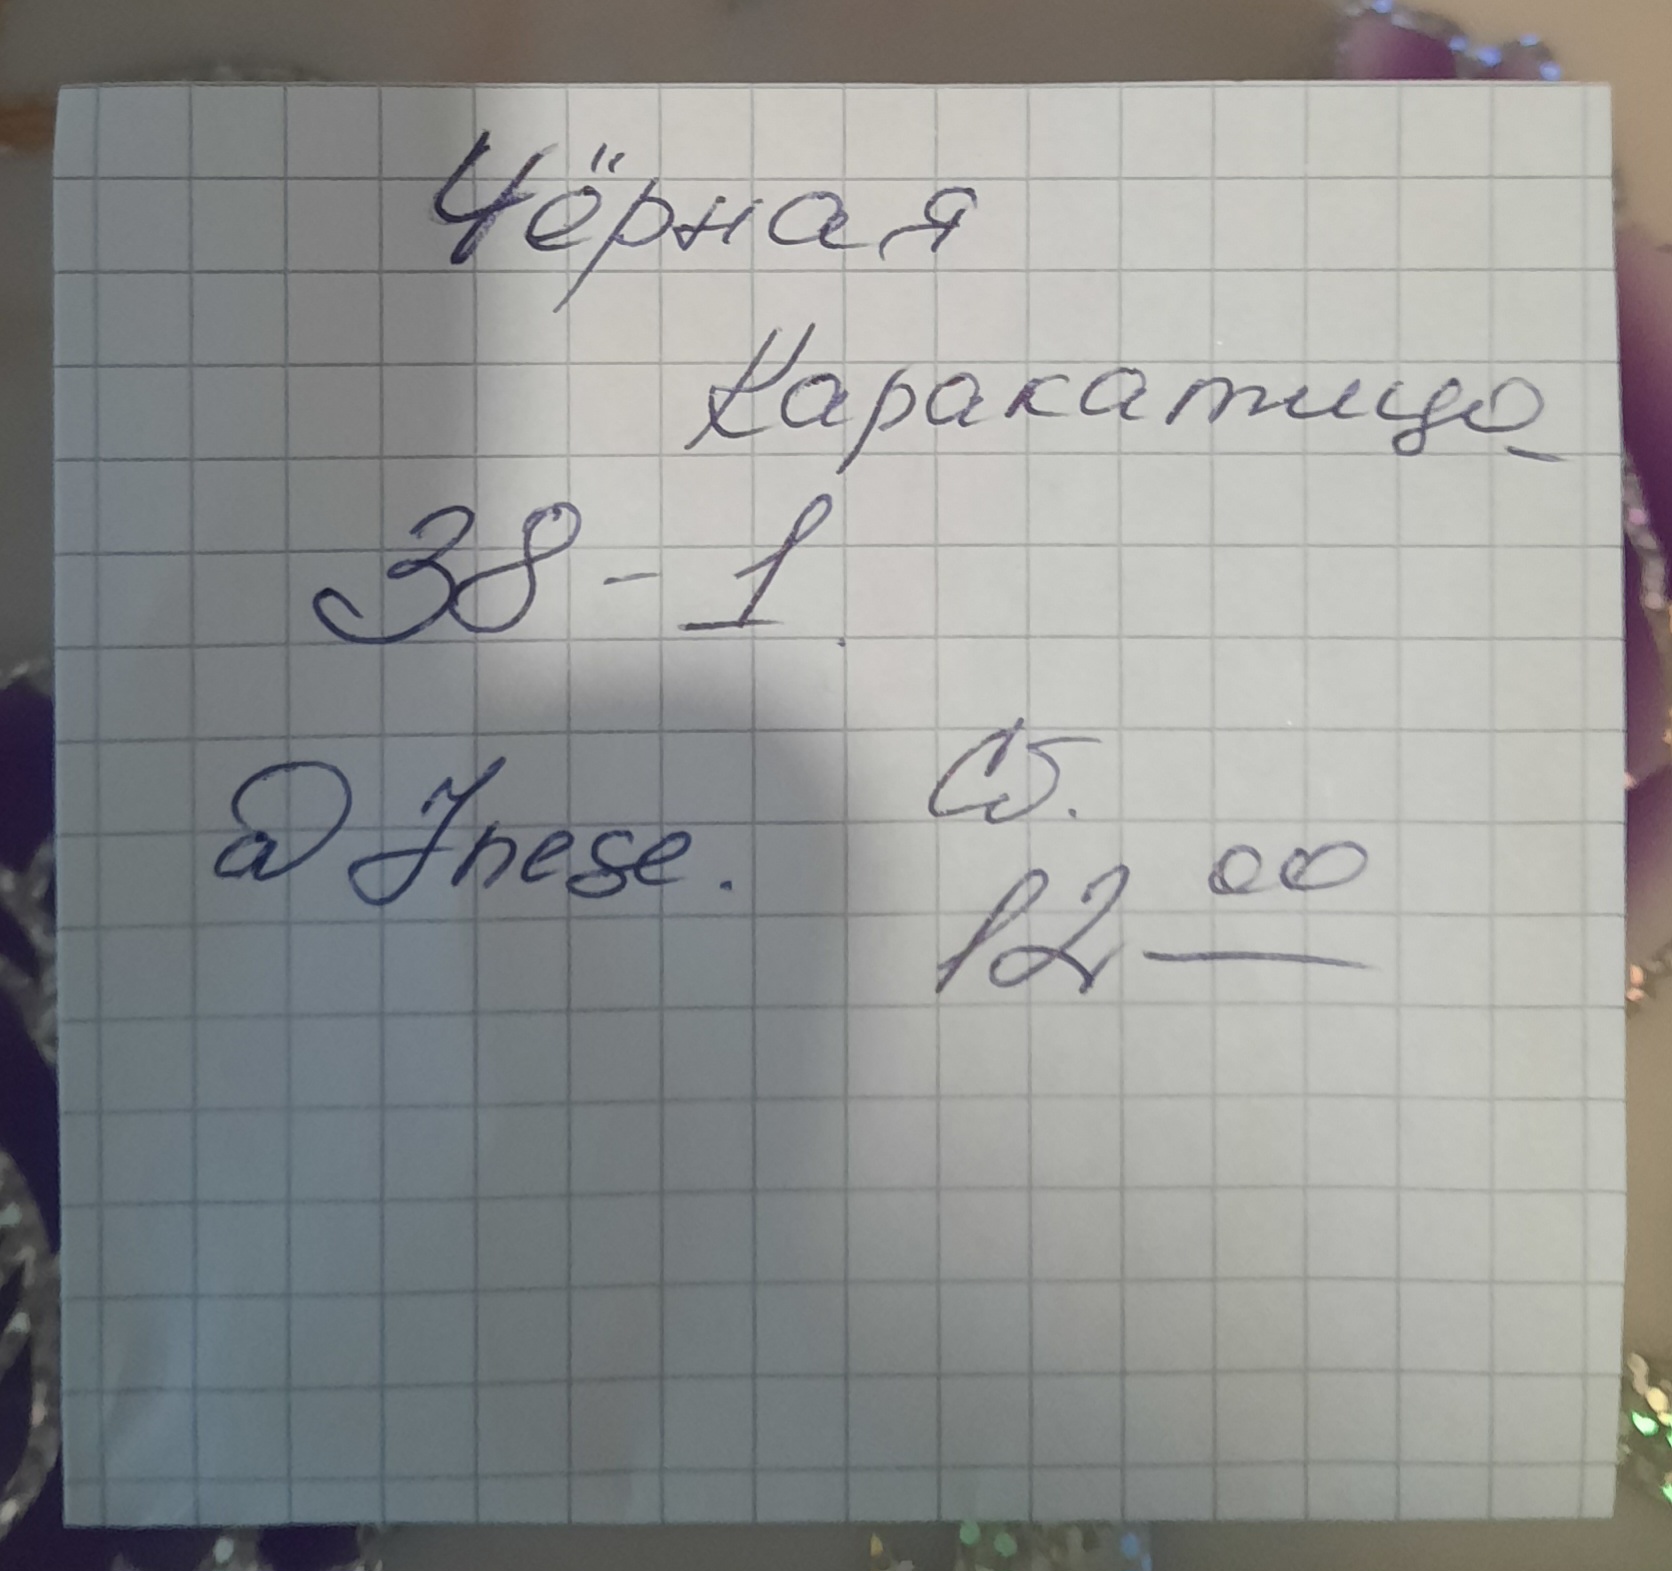 Чёрная
Каракатица
38 - 1.
@ Inese.
Сб.
12 00